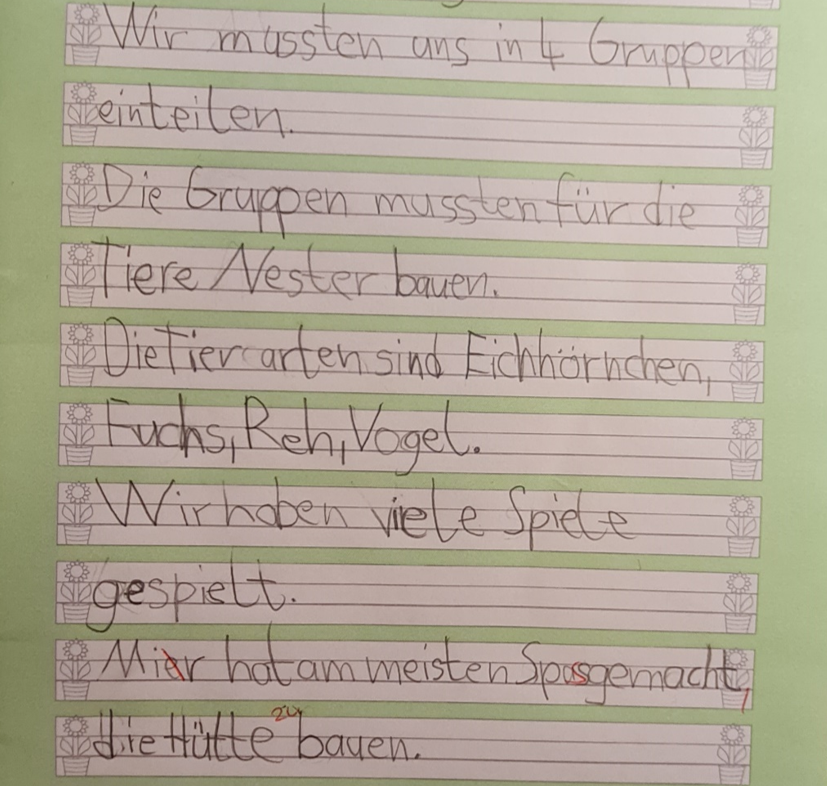 Wir mussten uns in 4 Gruppen
einteilen.
Die Gruppen mussten für die
Tiere Nester bauen.
Die Tierarten sind Eichhörnchen,
Fuchs, Reh, Vogel.
Wir haben viele Spiele
gespielt.
Mir hat am meisten Spas gemacht,
die Hütte zu bauen.